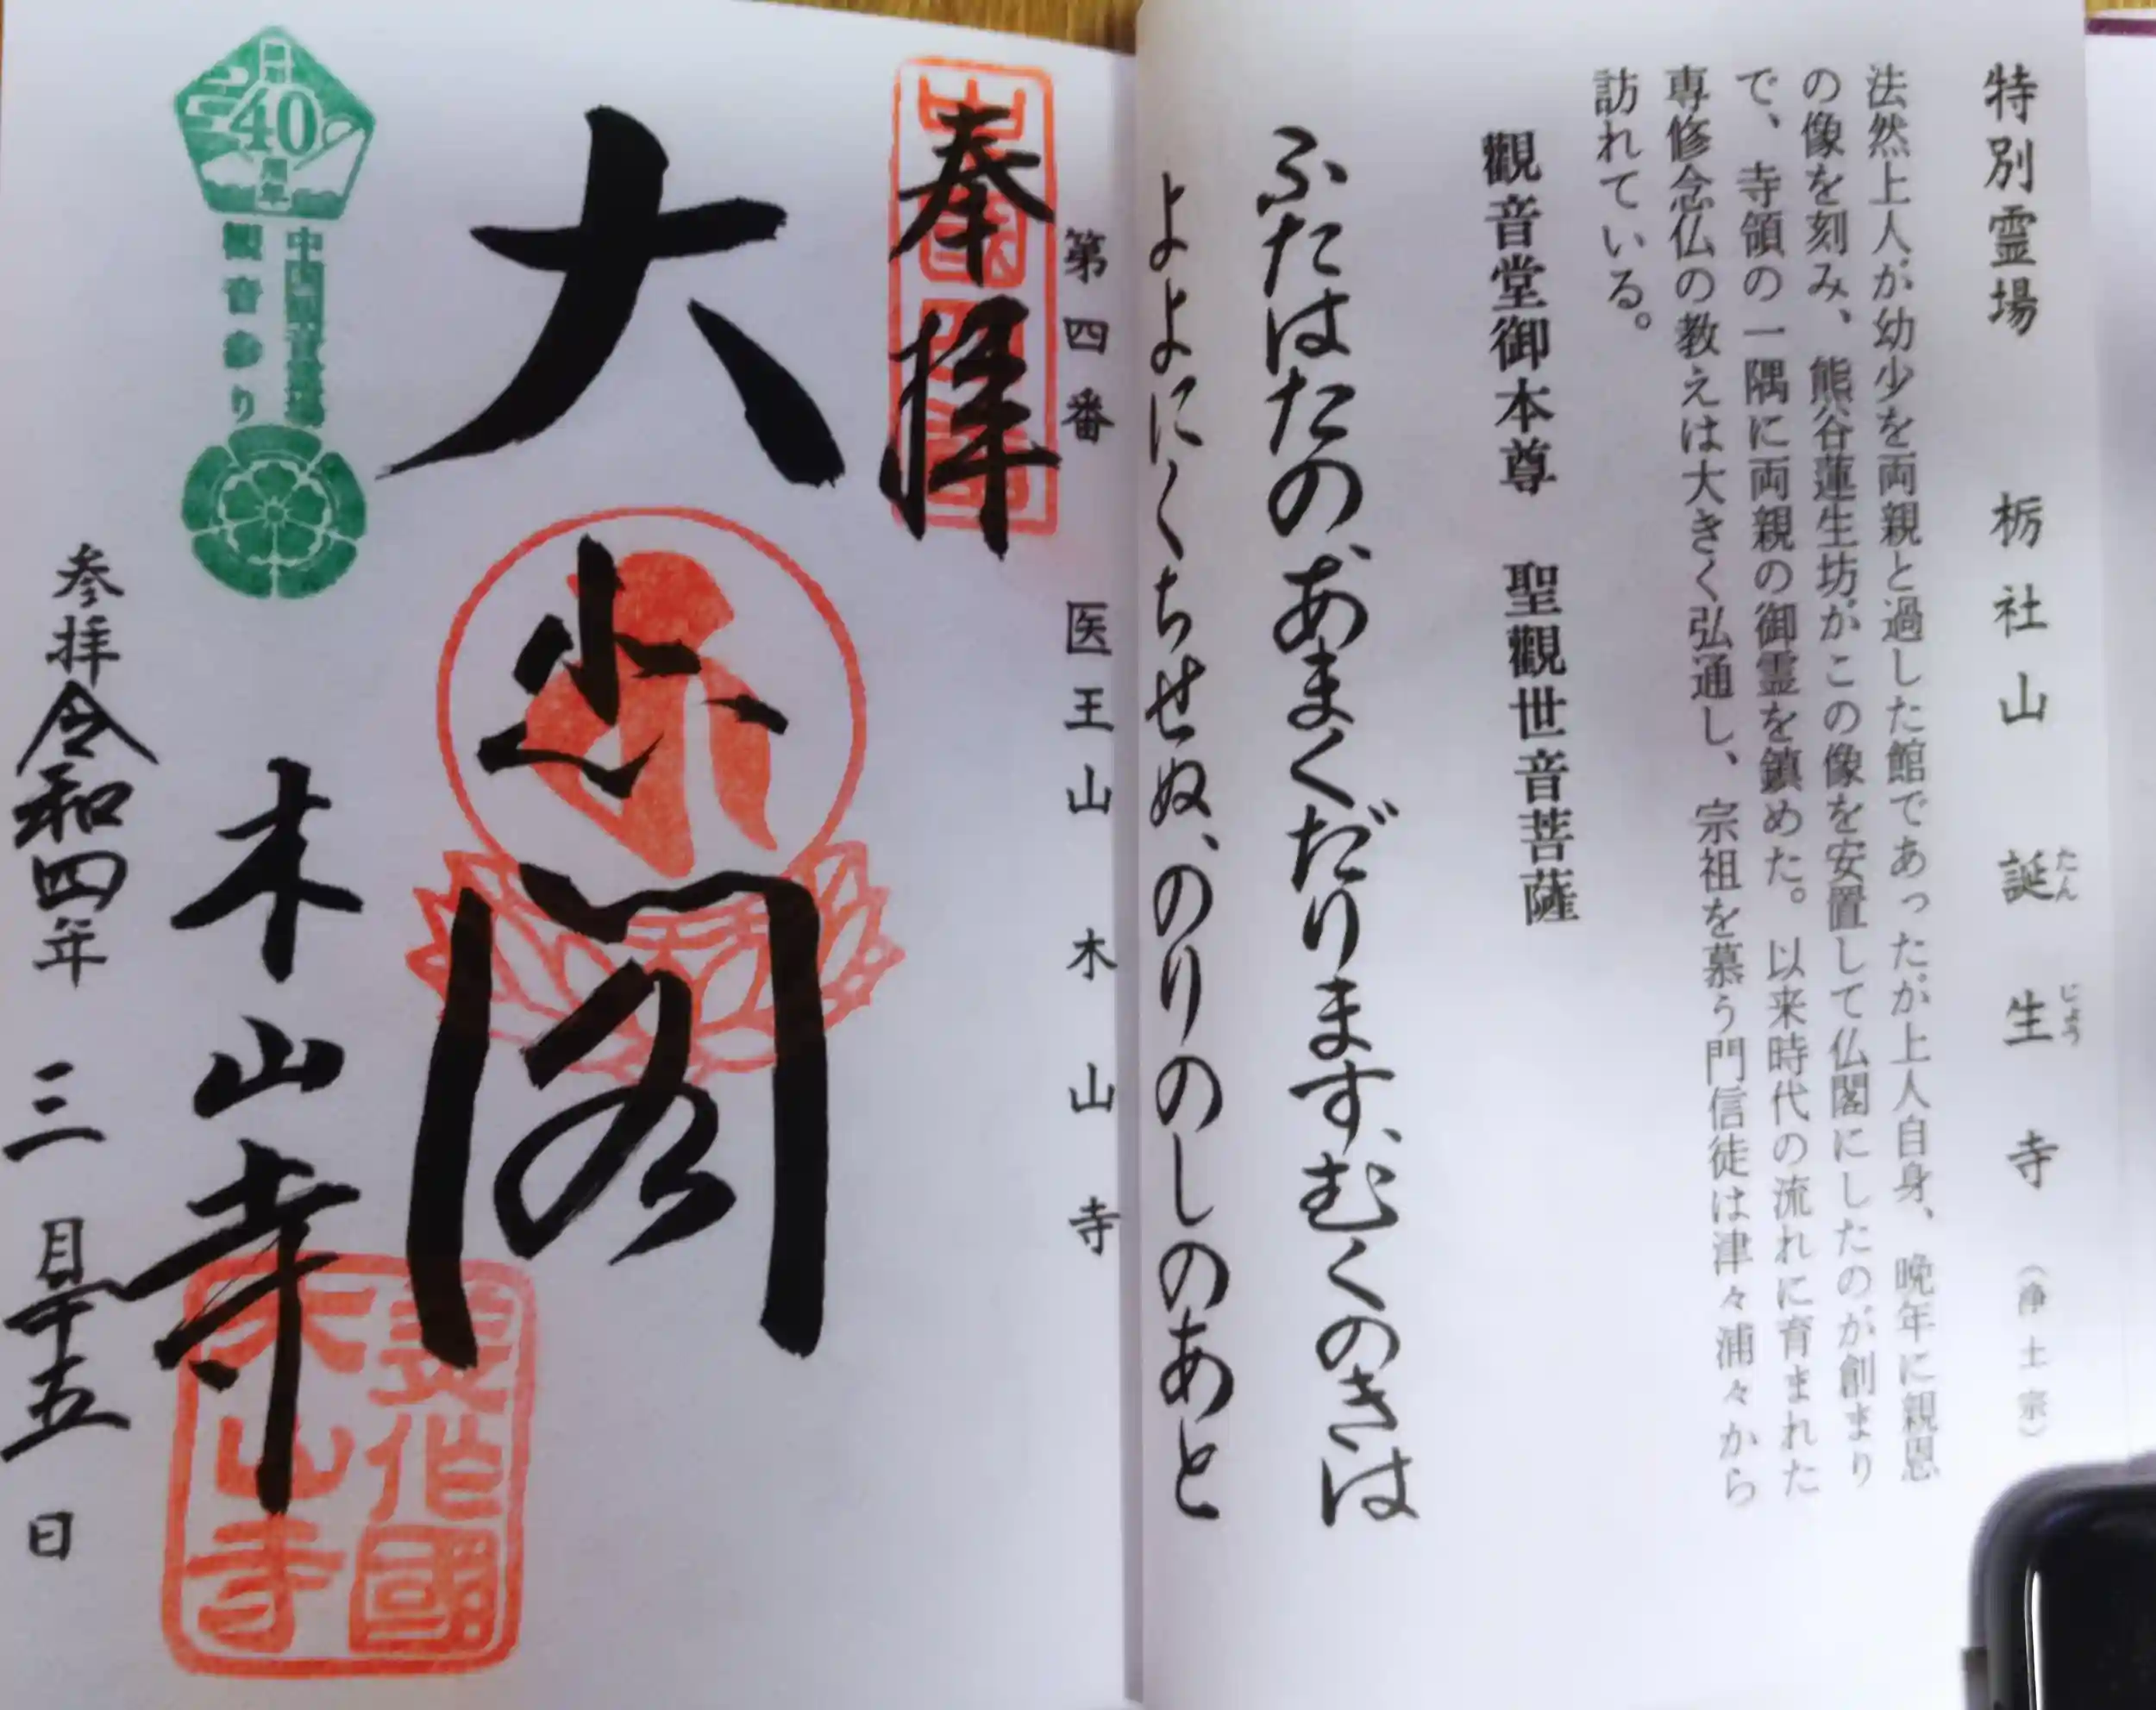 特別霊場　栃社山　誕生寺（浄土宗）
たんじょう
法然上人が幼少を両親と過した館であったが上人自身、晩年に親恩
の像を刻み、熊谷蓮生坊がこの像を安置して仏閣にしたのが創まり
で、寺領の一隅に両親の御霊を鎮めた。以来時代の流れに育まれた
専修念仏の教えは大きく弘通し、宗祖を慕う門信徒は津々浦々から
訪れている。
觀音堂御本尊　聖觀世音菩薩
ふたはたのあまくだります、むくのきは
よよにくちせぬ、のりのしのあと
第四番　医王山　木山寺
奉拝
大悲閣
木山寺
美作國
木山寺
40
周年
中国観音霊場
観音参り
参拝令和四年三月二十五日